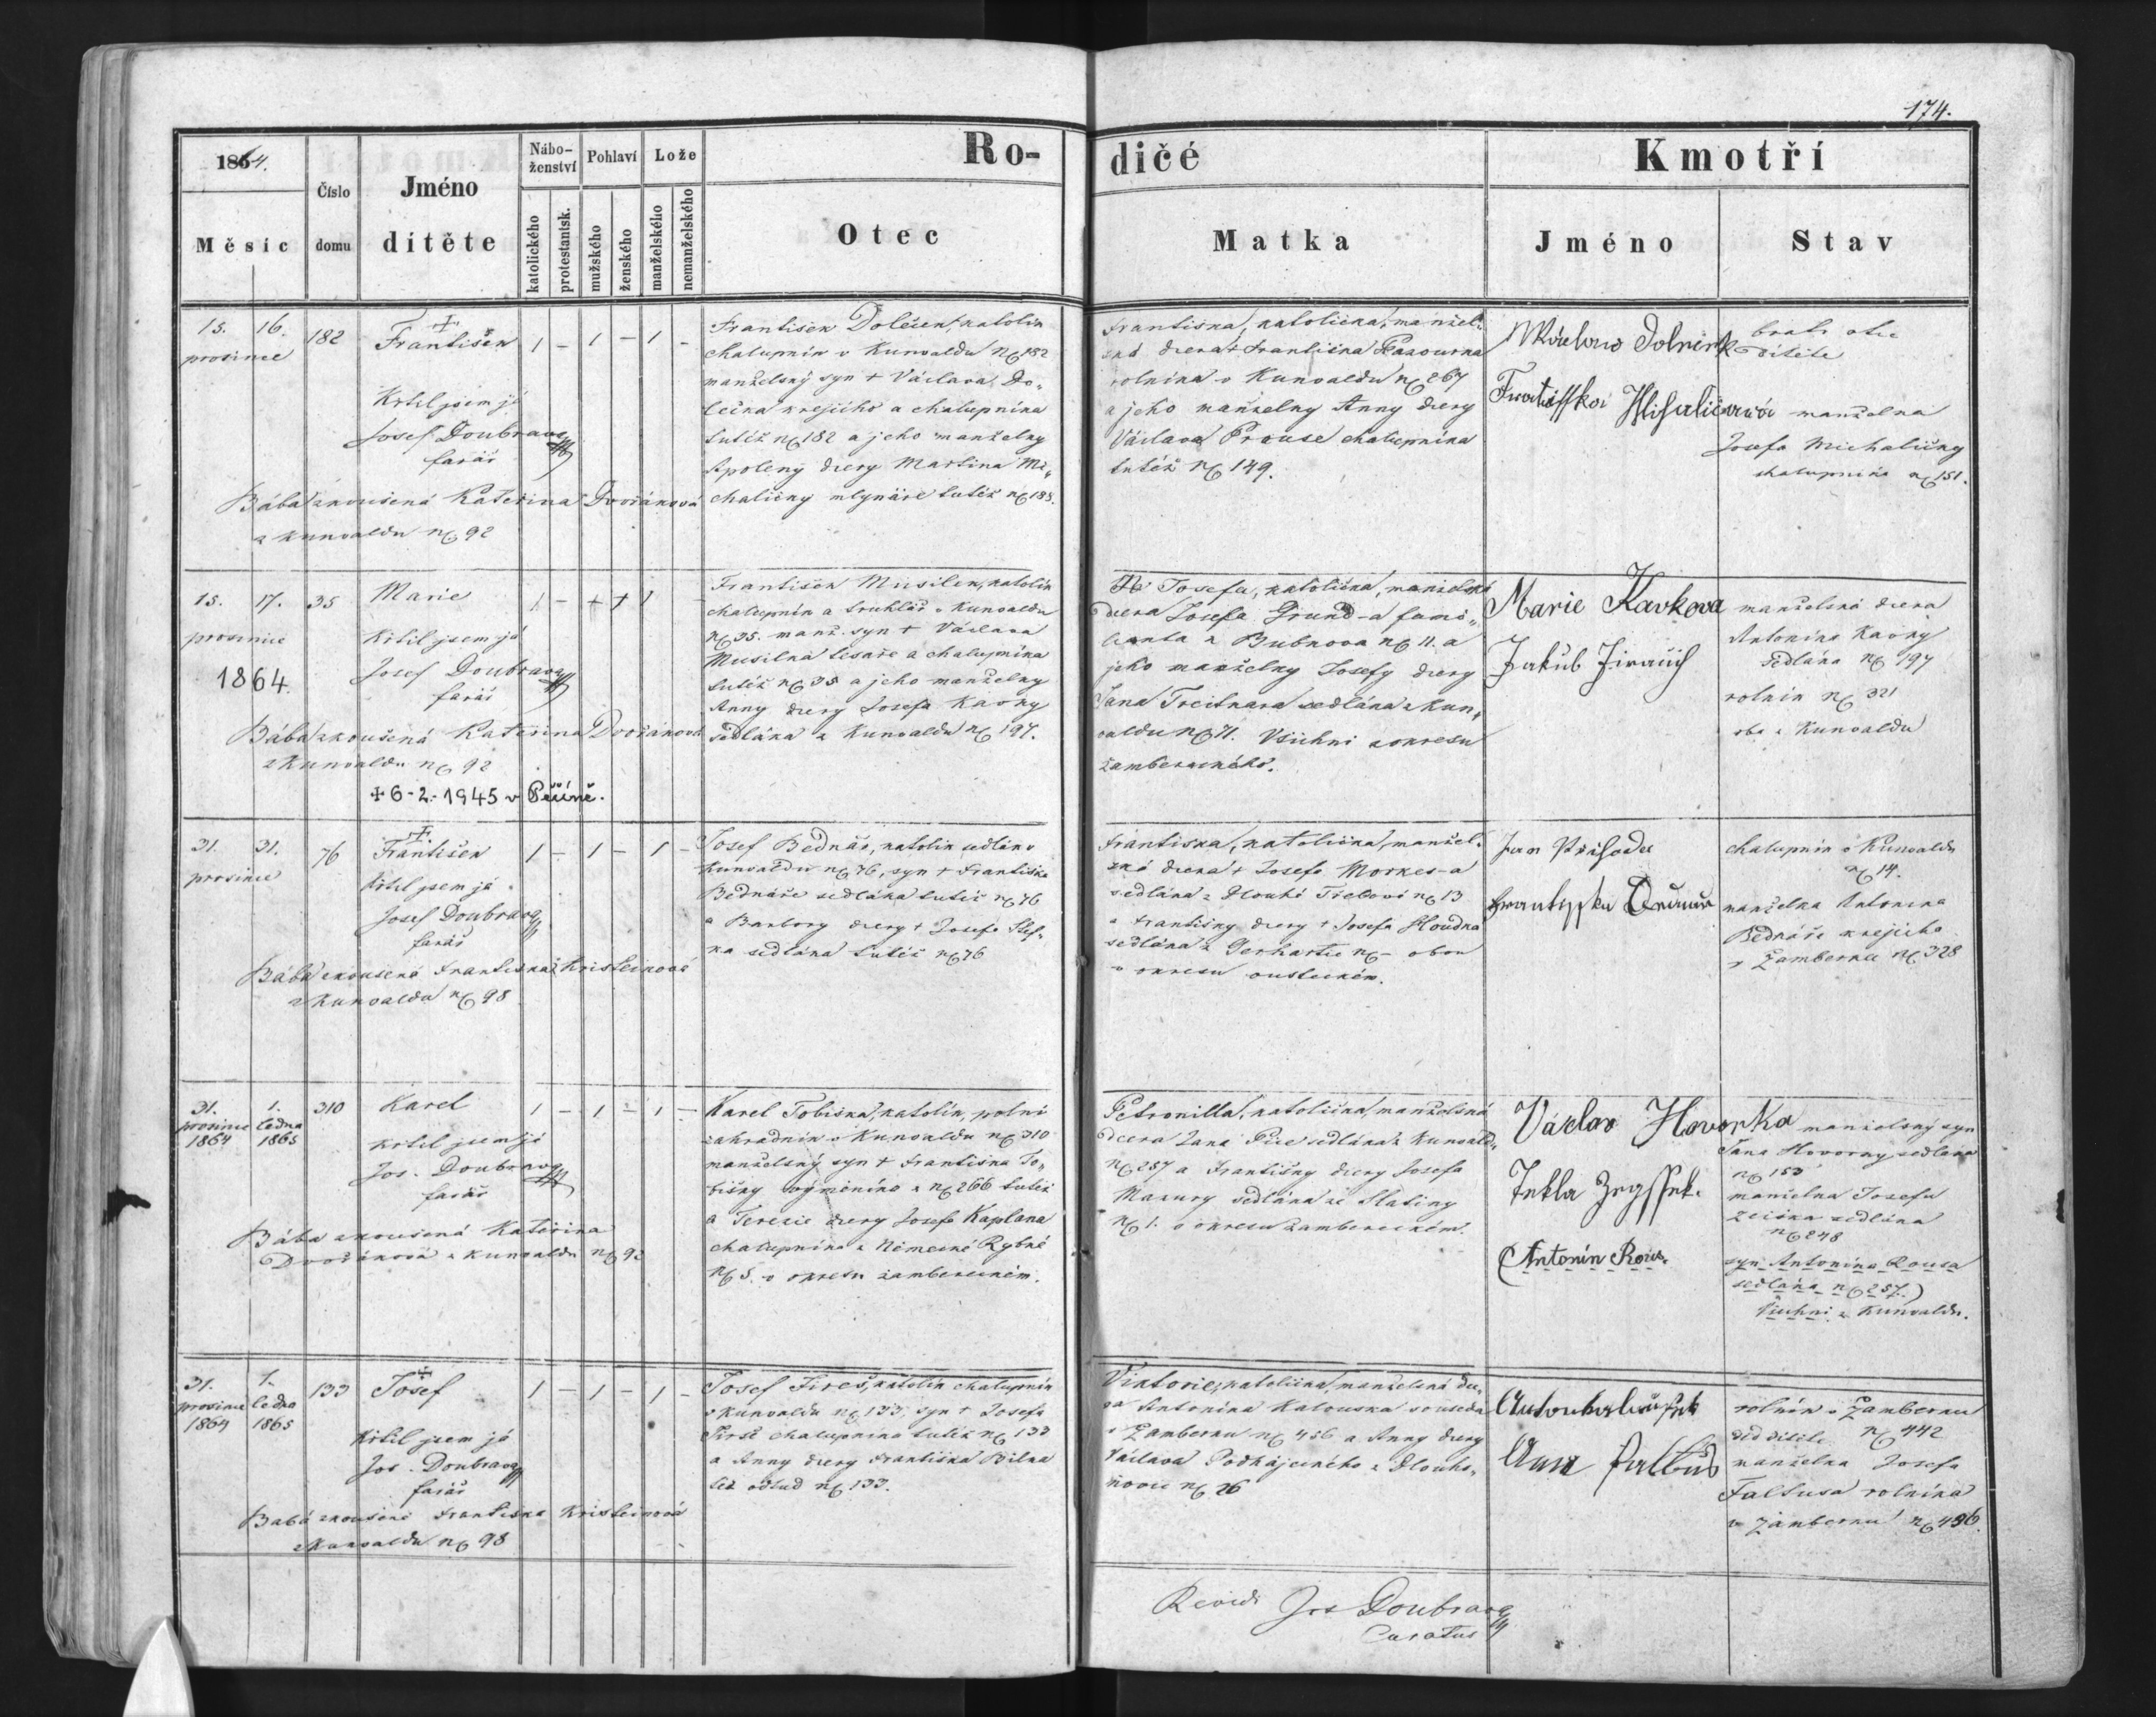 174.
1864.
Měsíc
Číslo
domu
Jméno
dítěte
Nábo-
ženství
katolického
protestantsk.
Pohlaví
mužského
ženského
Lože
manželského
nemanželského
Ro-
dičé
Otec
Matka
Kmotří
Jméno
Stav
15. 16.
prosince
182
František
1 – 1 – 1 –
Krtil jsem já
Josef Doubrava
farář
Bába zkoušená Kateřina Dvořáková
z Kunvaldu N. 92
František Doleček, katolík
chalupník v Kunvaldu N. 182
manželský syn + Václava Do-
lečka krejčího a chalupníka
tutéž N. 182 a jeho manželky
Apoleny dcery Martina Mi-
chaličky mlynáře tutéž N. 188.
Františka, katolička, manžel-
ská dcera + Františka
rolníka v Kunvaldu N. 267
a jeho manželky Anny dcery
Václava Prouse chalupníka
tutéž N. 149.
bratr otce
dítěte
manželka
Josefa Michaličky
chalupníka N. 151.
15. 17.
prosince
1864.
35
Marie
1 – + + 1
Krtil jsem já
Josef Doubrava
farář
Bába zkoušená Kateřina Dvořáková
z Kunvaldu N. 92
+ 6-2.-1945 v Pěčíně.
František Musílek, katolík
chalupník a truhlář v Kunvaldu
N. 35. manž. syn + Václava
Musílka tesaře a chalupníka
tutéž N. 35 a jeho manželky
Anny dcery Josefa Kavky
sedláka z Kunvaldu N. 197.
Josefa, katolička, manželská
dcera Josefa Grund-a fami-
lianta z Bubnova N. 11. a
jeho manželky Josefy dcery
Jana Treitnara sedláka z Kun-
valdu N. 71. Všichni z okresu
žambereckého.
Marie Kavkova
Jakub
manželská dcera
Antonína Kavky
sedláka N. 197
rolník N. 321
oba z Kunvaldu
31. 31.
prosince
76
František
1 – 1 – 1 –
Krtil jsem já
Josef Doubrava
farář
Bába zkoušená Františka Kristeinová
z Kunvaldu N. 98
Josef Bednář, katolík sedlák v
Kunvaldu N. 76, syn + Františka
Bednáře sedláka tutéž N. 76
a Barbory dcery + Josefa Štef-
ka sedláka tutéž N. 76
Františka, katolička, manžel-
ská dcera + Josefa Morkes-a
sedláka z Dlouhé Třebové N. 13
a Františky dcery + Josefa Houdka
sedláka z Gerhartic N. – obou
v okresu ousteckém.
Jan Přihoda
chalupník v Kunvaldu
N. 14.
manželka Antonína
Bednáře krejčího
v Žamberku N. 328
31. 1.
prosince ledna
1864 1865
310
Karel
1 – 1 – 1 –
Krtil jsem já
Jos. Doubrava
farář
Bába zkoušená Kateřina
Dvořáková z Kunvaldu N. 92
Karel Tobiška, katolík, polní
zahradník v Kunvaldu N. 310
manželský syn + Františka To-
bišky výměnkáře z N. 266 tutéž
a Terezie dcery Josefa Kaplana
chalupníka z Německé Rybné
N. 5. v okresu žambereckém.
Petronilla, katolička, manželská
dcera Jana sedláka z Kunvald-
N. 257 a Františky dcery Josefa
Mazury sedláka ze Slatiny
N. 1. v okresu žambereckém.
Václav Hovorka
Tekla
Antonín Rous.
manželský syn
Jana Hovorky sedláka
N. 153
manželka Josefa
sedláka
N. 248
syn Antonína Rousa
sedláka N. 257.)
Všichni z Kunvaldu.
31. 1.
prosince ledna
1864 1865
133
Josef
1 – 1 – 1 –
Krtil jsem já
Jos. Doubrava
farář
Bába zkoušená Františka Kristeinová
z Kunvaldu N. 98
Josef Jireš, katolík chalupník
v Kunvaldu N. 133, syn + Josefa
Jirše chalupníka tutéž N. 133
a Anny dcery Františka Bílka
též odtud N. 133.
Viktorie, katolička, manželská dce-
ra Antonína Kalouska souseda
v Žamberku N. 456 a Anny dcery
Václava Podhájeckého z Dlouho-
ňovic N. 26
Anna Faltus
rolník v Žamberku
děd dítěte N. 442
manželka Josefa
Faltusa rolníka
v Žamberku N. 496.
Revid. Jos Doubrava
Curatus